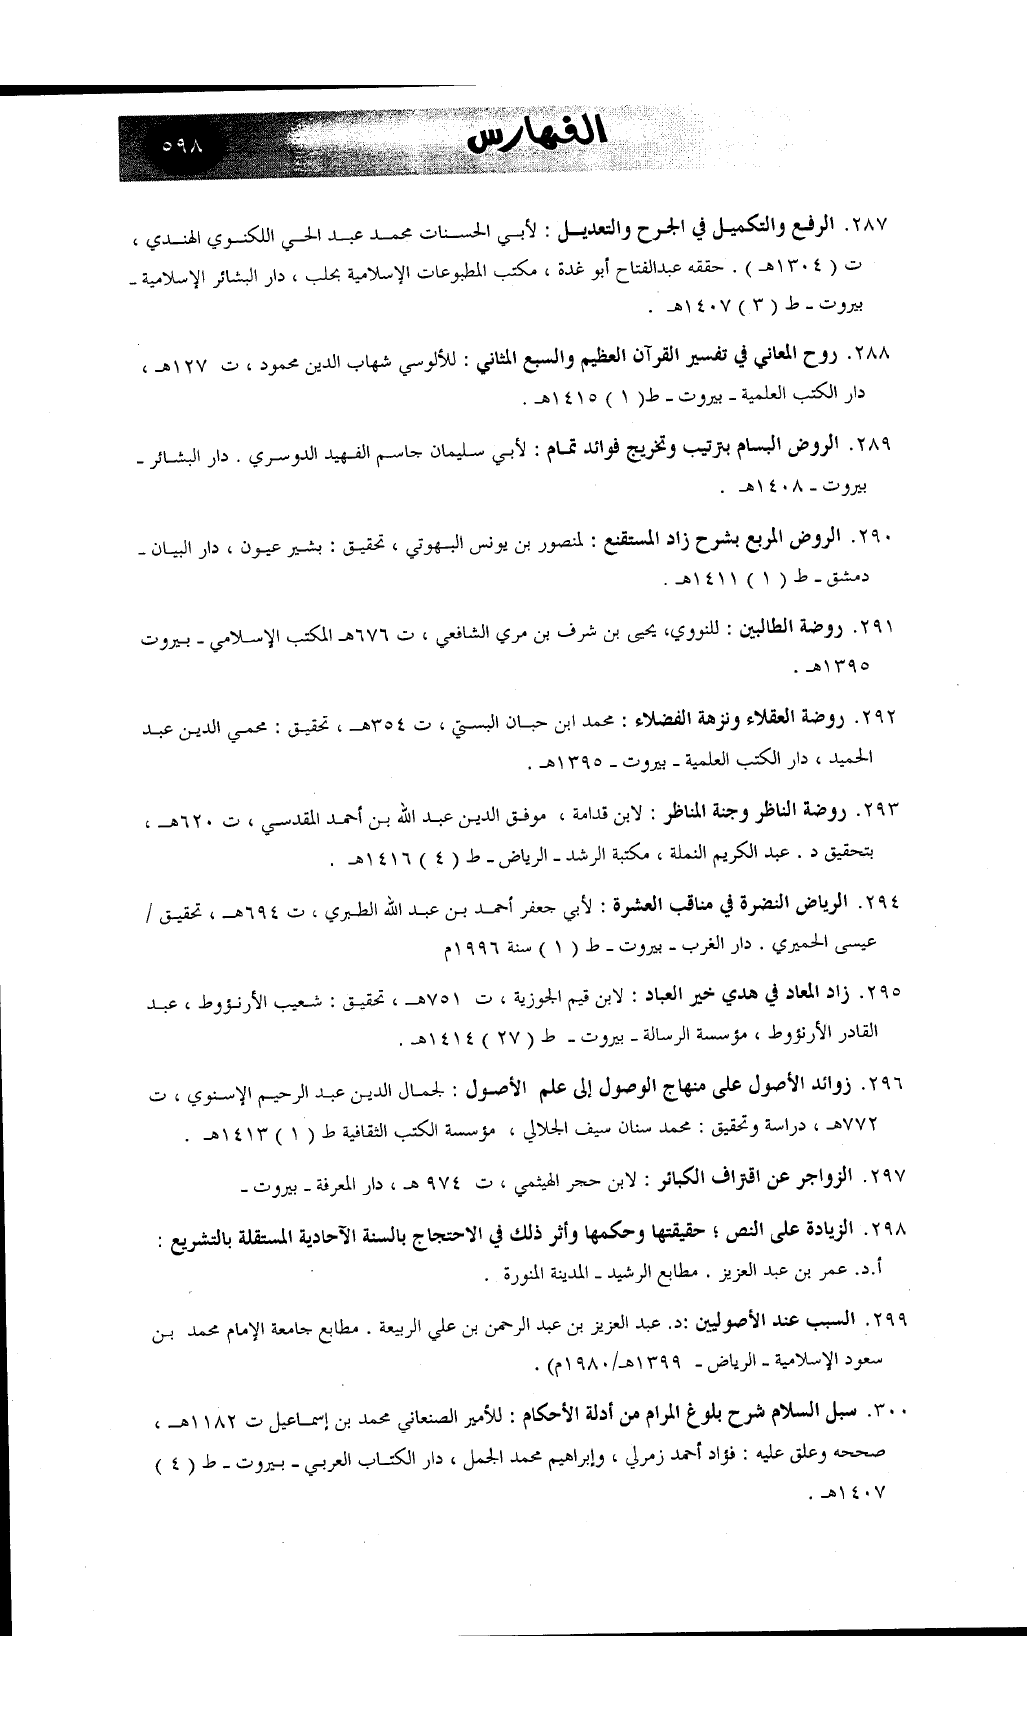 الفهارس
٥٩٨
٢٨٧. الرفع والتكميل في الجرح والتعديل : لأبي الحسنات محمد عبد الحي اللكنوي الهندي ،
ت ( ١٣٠٤هـ ) . حققه عبدالفتاح أبو غدة ، مكتب المطبوعات الإسلامية بحلب ، دار البشائر الإسلامية ـ
بيروت ـ ط ( ٣ ) ١٤٠٧هـ .
٢٨٨. روح المعاني في تفسير القرآن العظيم والسبع المثاني : للألوسي شهاب الدين محمود ، ت ١٢٧هـ ،
دار الكتب العلمية ـ بيروت ـ ط( ١ ) ١٤١٥هـ .
٢٨٩. الروض البسام بترتيب وتخريج فوائد تمام : لأبي سليمان جاسم الفهيد الدوسري . دار البشائر ـ
بيروت ـ ١٤٠٨هـ .
٢٩٠. الروض المربع بشرح زاد المستقنع : لمنصور بن يونس البهوتي ، تحقيق : بشير عيون ، دار البيان ـ
دمشق ـ ط ( ١ ) ١٤١١هـ .
٢٩١. روضة الطالبين : للنووي، يحيى بن شرف بن مري الشافعي ، ت ٦٧٦هـ المكتب الإسلامي ـ بيروت
١٣٩٥هـ .
٢٩٢. روضة العقلاء ونزهة الفضلاء : محمد ابن حبان البستي ، ت ٣٥٤هـ ، تحقيق : محمي الدين عبد
الحميد ، دار الكتب العلمية ـ بيروت ـ ١٣٩٥هـ .
٢٩٣. روضة الناظر وجنة المناظر : لابن قدامة ، موفق الدين عبد الله بن أحمد المقدسي ، ت ٦٢٠هـ ،
بتحقيق د . عبد الكريم النملة ، مكتبة الرشد ـ الرياض ـ ط ( ٤ ) ١٤١٦هـ .
٢٩٤. الرياض النضرة في مناقب العشرة : لأبي جعفر أحمد بن عبد الله الطبري ، ت ٦٩٤هـ ، تحقيق /
عيسى الحميري . دار الغرب ـ بيروت ـ ط ( ١ ) سنة ١٩٩٦م
٢٩٥. زاد المعاد في هدي خير العباد : لابن قيم الجوزية ، ت ٧٥١هـ ، تحقيق : شعيب الأرنؤوط ، عبد
القادر الأرنؤوط ، مؤسسة الرسالة ـ بيروت ـ ط ( ٢٧ ) ١٤١٤هـ .
٢٩٦. زوائد الأصول على منهاج الوصول إلى علم الأصول : لجمال الدين عبد الرحيم الإسنوي ، ت
٧٧٢هـ ، دراسة وتحقيق : محمد سنان سيف الجلالي ، مؤسسة الكتب الثقافية ط ( ١ ) ١٤١٣هـ .
٢٩٧. الزواجر عن اقتراف الكبائر : لابن حجر الهيثمي ، ت ٩٧٤ هـ ، دار المعرفة ـ بيروت ـ
٢٩٨. الزيادة على النص ؛ حقيقتها وحكمها وأثر ذلك في الاحتجاج بالسنة الآحادية المستقلة بالتشريع :
أ.د. عمر بن عبد العزيز . مطابع الرشيد ـ المدينة المنورة .
٢٩٩. السبب عند الأصوليين :د. عبد العزيز بن عبد الرحمن بن علي الربيعة . مطابع جامعة الإمام محمد بن
سعود الإسلامية ـ الرياض ـ ١٣٩٩هـ/١٩٨٠م) .
٣٠٠. سبل السلام شرح بلوغ المرام من أدلة الأحكام : للأمير الصنعاني محمد بن إسماعيل ت ١١٨٢هـ ،
صححه وعلق عليه : فؤاد أحمد زمرلي ، وإبراهيم محمد الجمل ، دار الكتاب العربي ـ بيروت ـ ط ( ٤ )
١٤٠٧هـ .